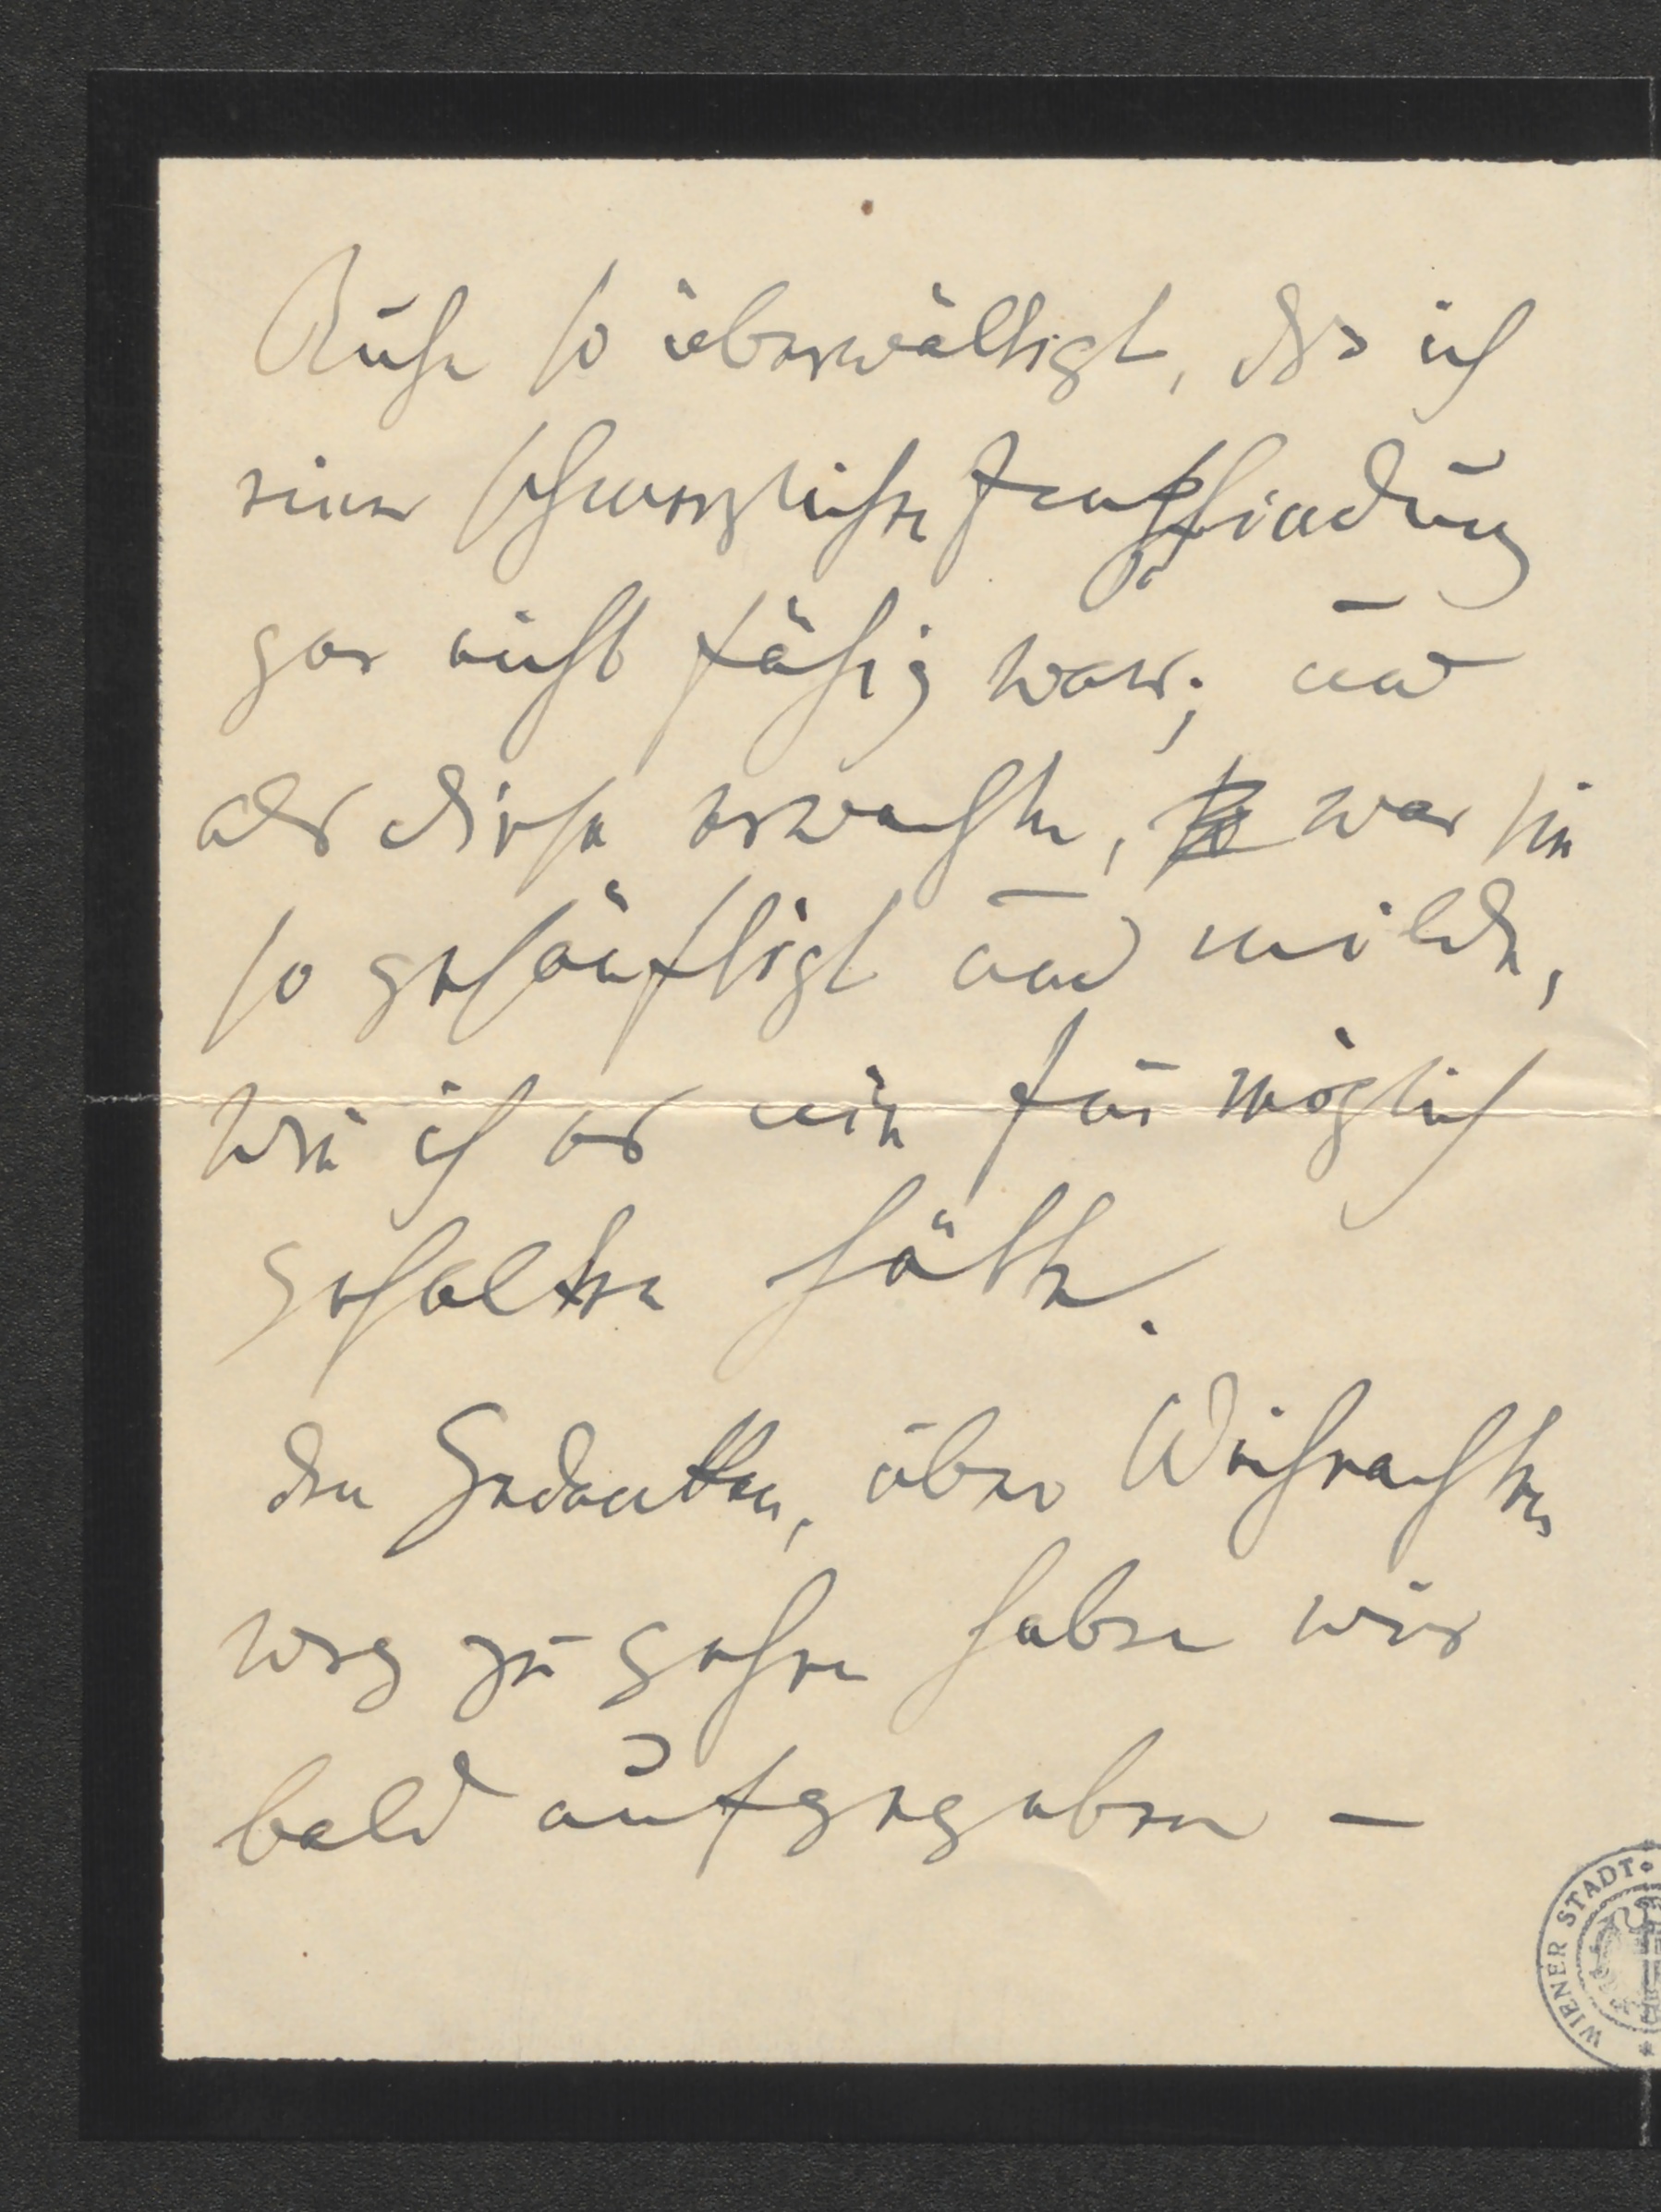 Ruhe so überwältigt, dss ich
einer schmerzlichen Empfindung
gar nicht fähig war; und
als diese erwachte, so war sie
so gesänftigt und milde,
wie ich es nie für möglich
gehalten hätte.
Den Gedanken, über Weihnachten
weg zu gehen haben wir
bald aufgegeben —
WIENER STADT